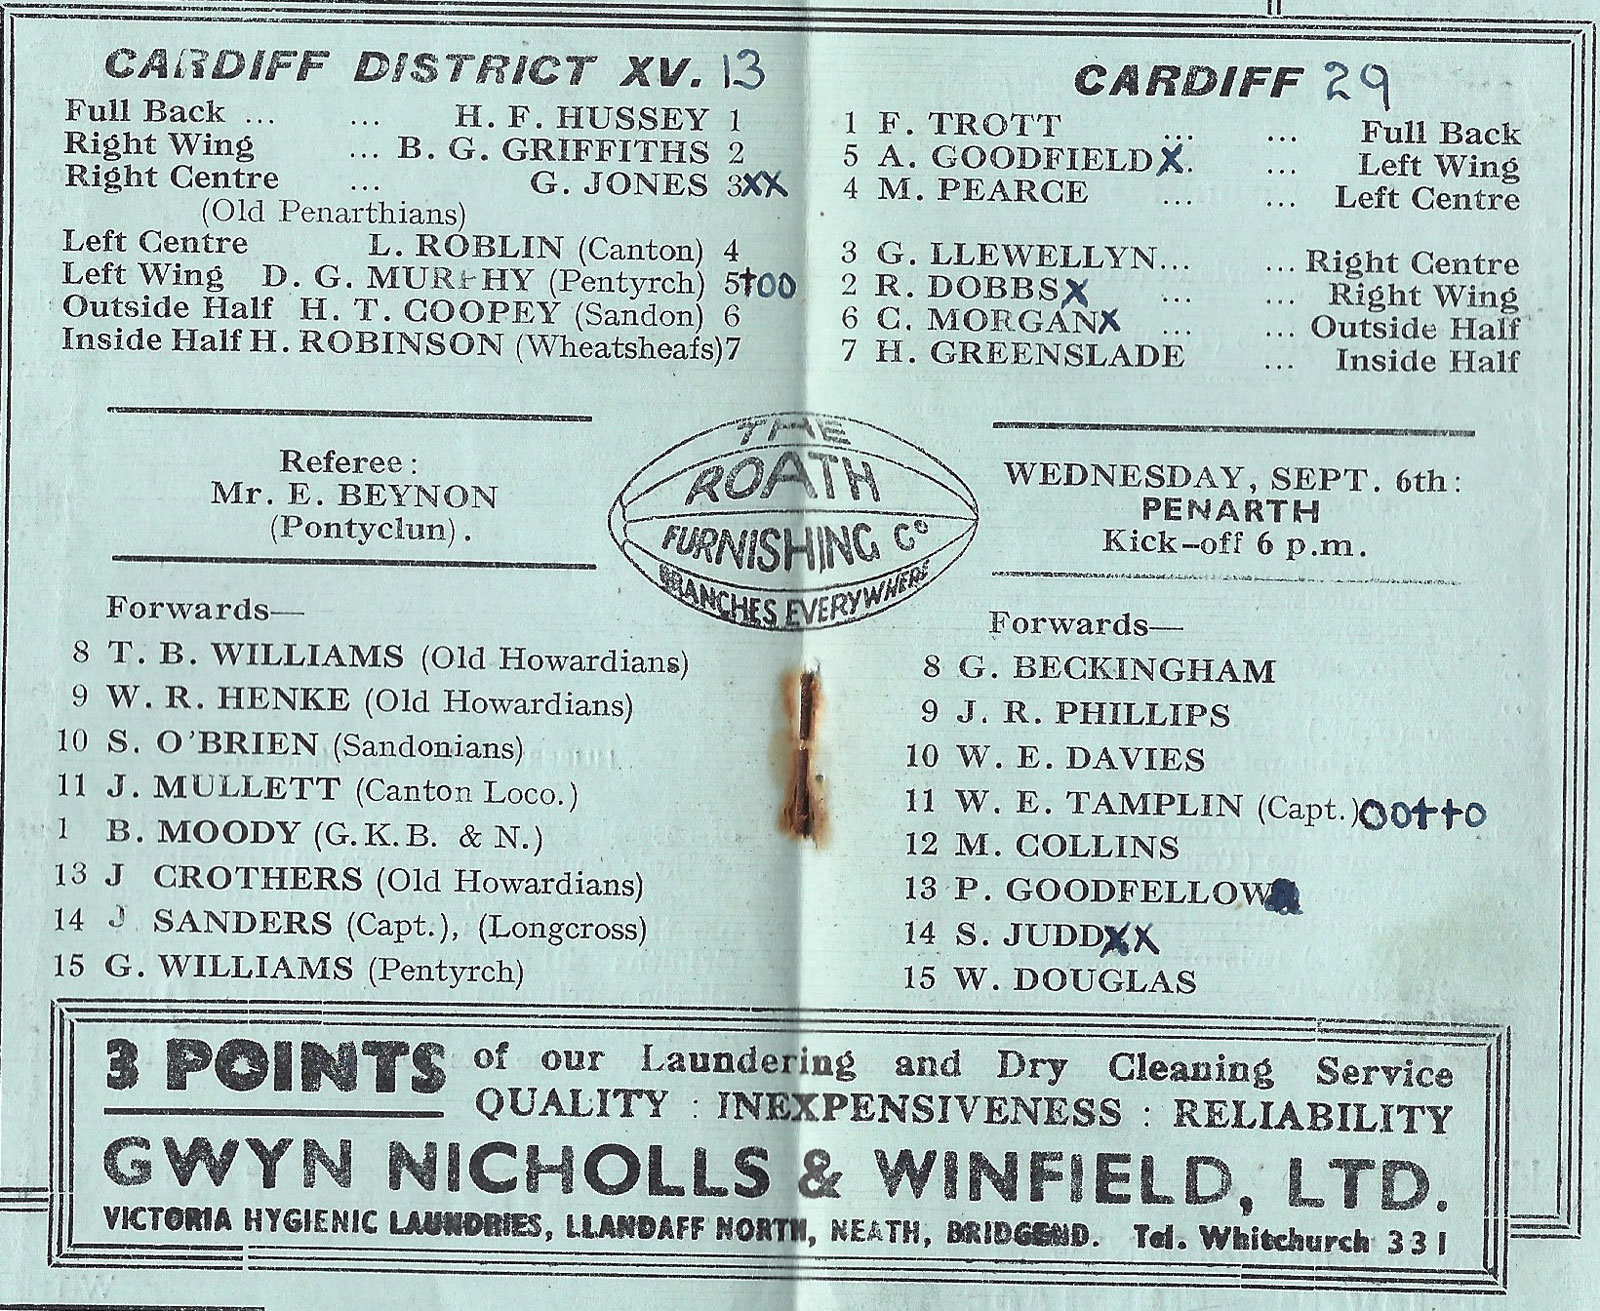 CARDIFF DISTRICT XV. 13
Full Back ... ... H. F. HUSSEY 1
Right Wing ... B. G. GRIFFITHS 2
Right Centre ... G. JONES 3XX
(Old Penarthians)
Left Centre L. ROBLIN (Canton) 4
Left Wing D. G. MURPHY (Pentyrch) 5+OO
Outside Half H. T. COOPEY (Sandon) 6
Inside Half H. ROBINSON (Wheatsheafs) 7
CARDIFF 29
1 F. TROTT ... ... Full Back
5 A. GOODFIELD X. ... Left Wing
4 M. PEARCE ... ... Left Centre
3 G. LLEWELLYN... ... Right Centre
2 R. DOBBS X ... ... Right Wing
6 C. MORGAN X ... ... Outside Half
7 H. GREENSLADE ... Inside Half
Referee:
Mr. E. BEYNON
(Pontyclun).
THE
ROATH
FURNISHING Co
BRANCHES EVERYWHERE
WEDNESDAY, SEPT. 6th:
PENARTH
Kick-off 6 p.m.
Forwards—
8 T. B. WILLIAMS (Old Howardians)
9 W. R. HENKE (Old Howardians)
10 S. O'BRIEN (Sandonians)
11 J. MULLETT (Canton Loco.)
1 B. MOODY (G.K.B. & N.)
13 J CROTHERS (Old Howardians)
14 J SANDERS (Capt.), (Longcross)
15 G. WILLIAMS (Pentyrch)
Forwards—
8 G. BECKINGHAM
9 J. R. PHILLIPS
10 W. E. DAVIES
11 W. E. TAMPLIN (Capt.) OO++O
12 M. COLLINS
13 P. GOODFELLOW
14 S. JUDD XX
15 W. DOUGLAS
3 POINTS of our Laundering and Dry Cleaning Service
QUALITY : INEXPENSIVENESS : RELIABILITY
GWYN NICHOLLS & WINFIELD, LTD.
VICTORIA HYGIENIC LAUNDRIES, LLANDAFF NORTH, NEATH, BRIDGEND. Tel. Whitchurch 331